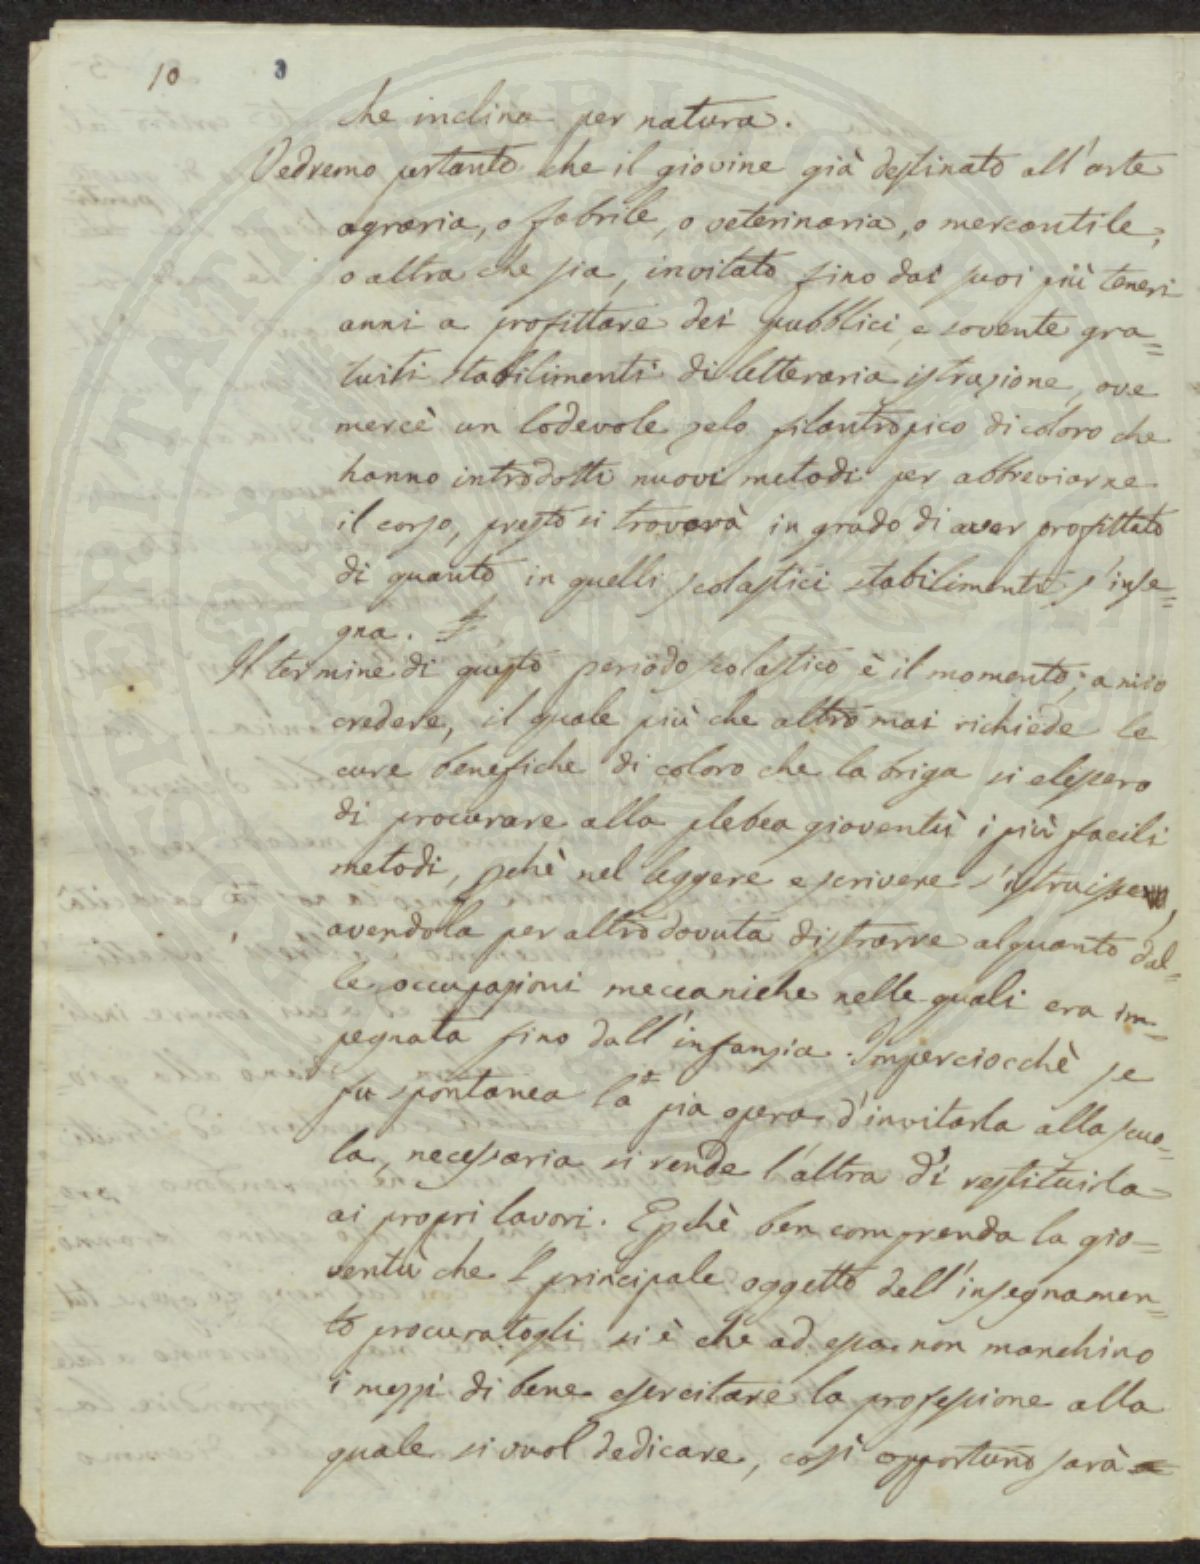 10
che inclina per natura.
Vedremo pertanto che il giovine già destinato all'arte
agraria, o fabrile, o veterinaria, o mercantile,
o altra che sia, invitato fino dai suoi più teneri
anni a profittare dei pubblici, e sovente gra=
tuiti stabilimenti di letteraria istruzione, ove
mercè un lodevole zelo filantropico di coloro che
hanno introdotti nuovi metodi per abbreviarne
il corso, presto si troverà in grado di aver profittato
di quanto in quelli scolastici stabilimenti s'inse=
gna.
Il termine di questo periodo scolastico è il momento, a mio
credere, il quale più che altro mai richiede le
cure benefiche di coloro che la briga si elessero
di procurare alla plebea gioventù i più facili
metodi, pchè nel leggere e scrivere s'istruisse,
avendola per altro dovuta distrarre alquanto dal=
le occupazioni meccaniche nelle quali era im=
pegnata fino dall'infanzia. Imperciocchè se
fu spontanea la pia opera d'invitarla alla scuo=
la, necessaria si rende l'altra di restituirla
ai propri lavori. E pchè ben comprenda la gio=
ventù che l' principale oggetto dell'insegnamen=
to procuratogli si è che ad essa non manchino
i mezzi di bene esercitare la professione alla
quale si vuol dedicare, così opportuno sarà